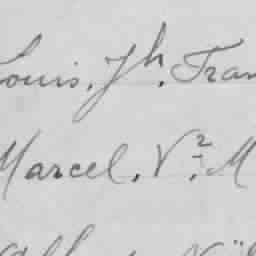 Louis, Jh. Fran
Marcel. Vr. M